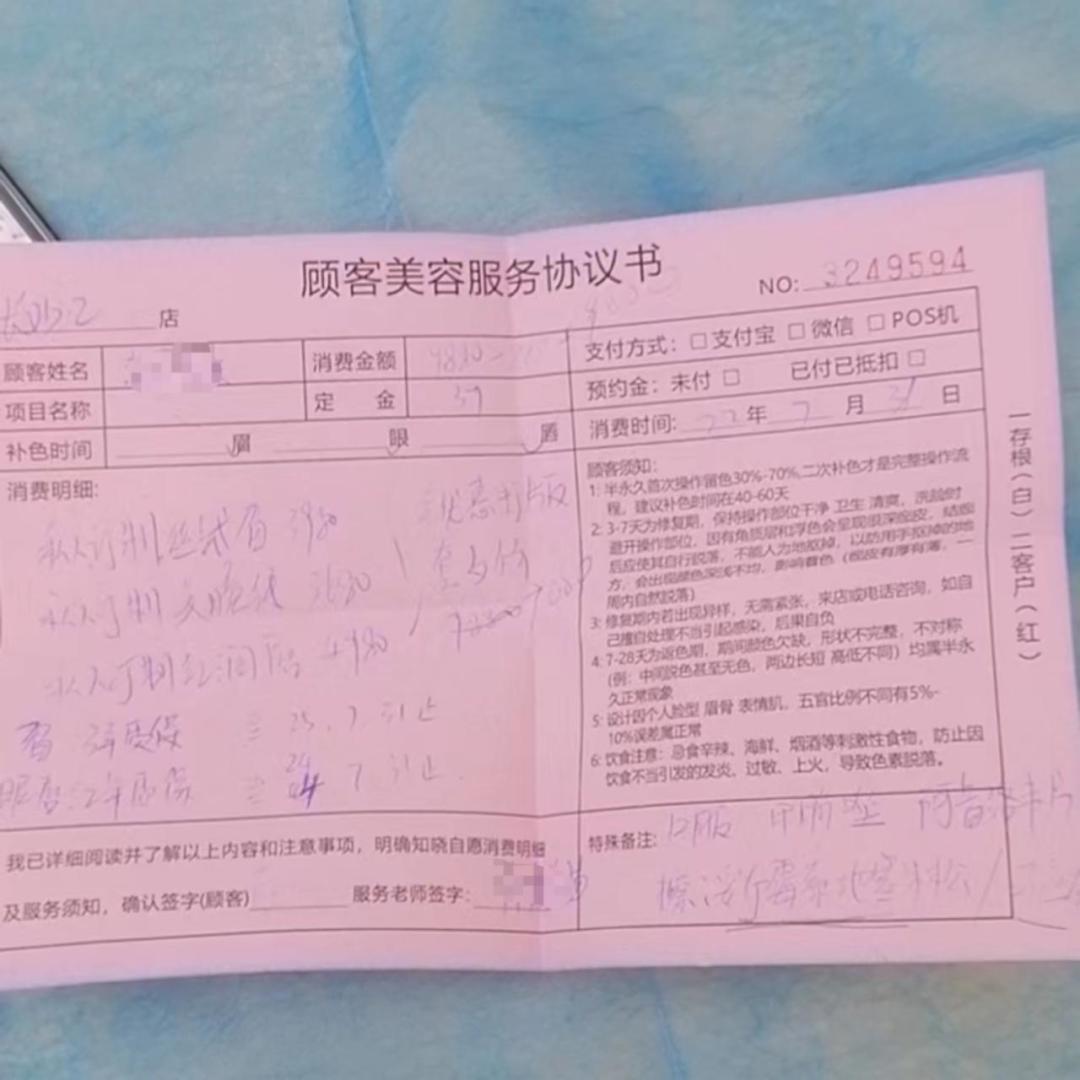 顾客美容服务协议书
NO: 3249594
店
顾客姓名 消费金额
项目名称 定 金 39
补色时间 眉 眼 唇
支付方式: □支付宝 □微信 □POS机
预约金: 未付 □ 已付已抵扣 □
消费时间: 22 年 7 月 31 日
消费明细:
私人订制丝 眉 3980
私人订制美瞳线 3680
私人订制红润唇 4980
优惠
眉 质保 25.7
2年质保 24 7
顾客须知:
1: 半永久首次操作留色30%-70%,二次补色才是完整操作流
程。建议补色时间在40-60天
2: 3-7天为修复期，保持操作部位干净 卫生 清爽，洗脸时
避开操作部位，因有角质层和浮色会呈现很深痂皮，结痂
后应使其自行脱落，不能人为地抠掉，以防用手抠掉的地
方，会出现颜色深浅不均，影响着色（痂皮有厚有薄，一
周内自然脱落）
3: 修复期内若出现异样，无需紧张，来店或电话咨询，如自
己擅自处理不当引起感染，后果自负
4: 7-28天为返色期，期间颜色欠缺，形状不完整，不对称
(例：中间脱色甚至无色，两边长短 高低不同）均属半永
久正常现象
5: 设计因个人脸型 眉骨 表情肌，五官比例不同有5%-
10%误差属正常
6: 饮食注意：忌食辛辣、海鲜、烟酒等刺激性食物，防止因
饮食不当引发的发炎、过敏、上火，导致色素脱落。
一存根(白)二客户(红)
我已详细阅读并了解以上内容和注意事项，明确知晓自愿消费明细
及服务须知，确认签字(顾客) 服务老师签字:
特殊备注: 口服 甲硝唑 阿昔洛韦片